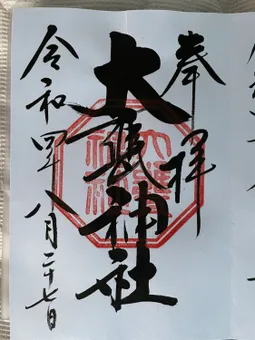 奉拝
大甕神社
令和四年八月二十七日